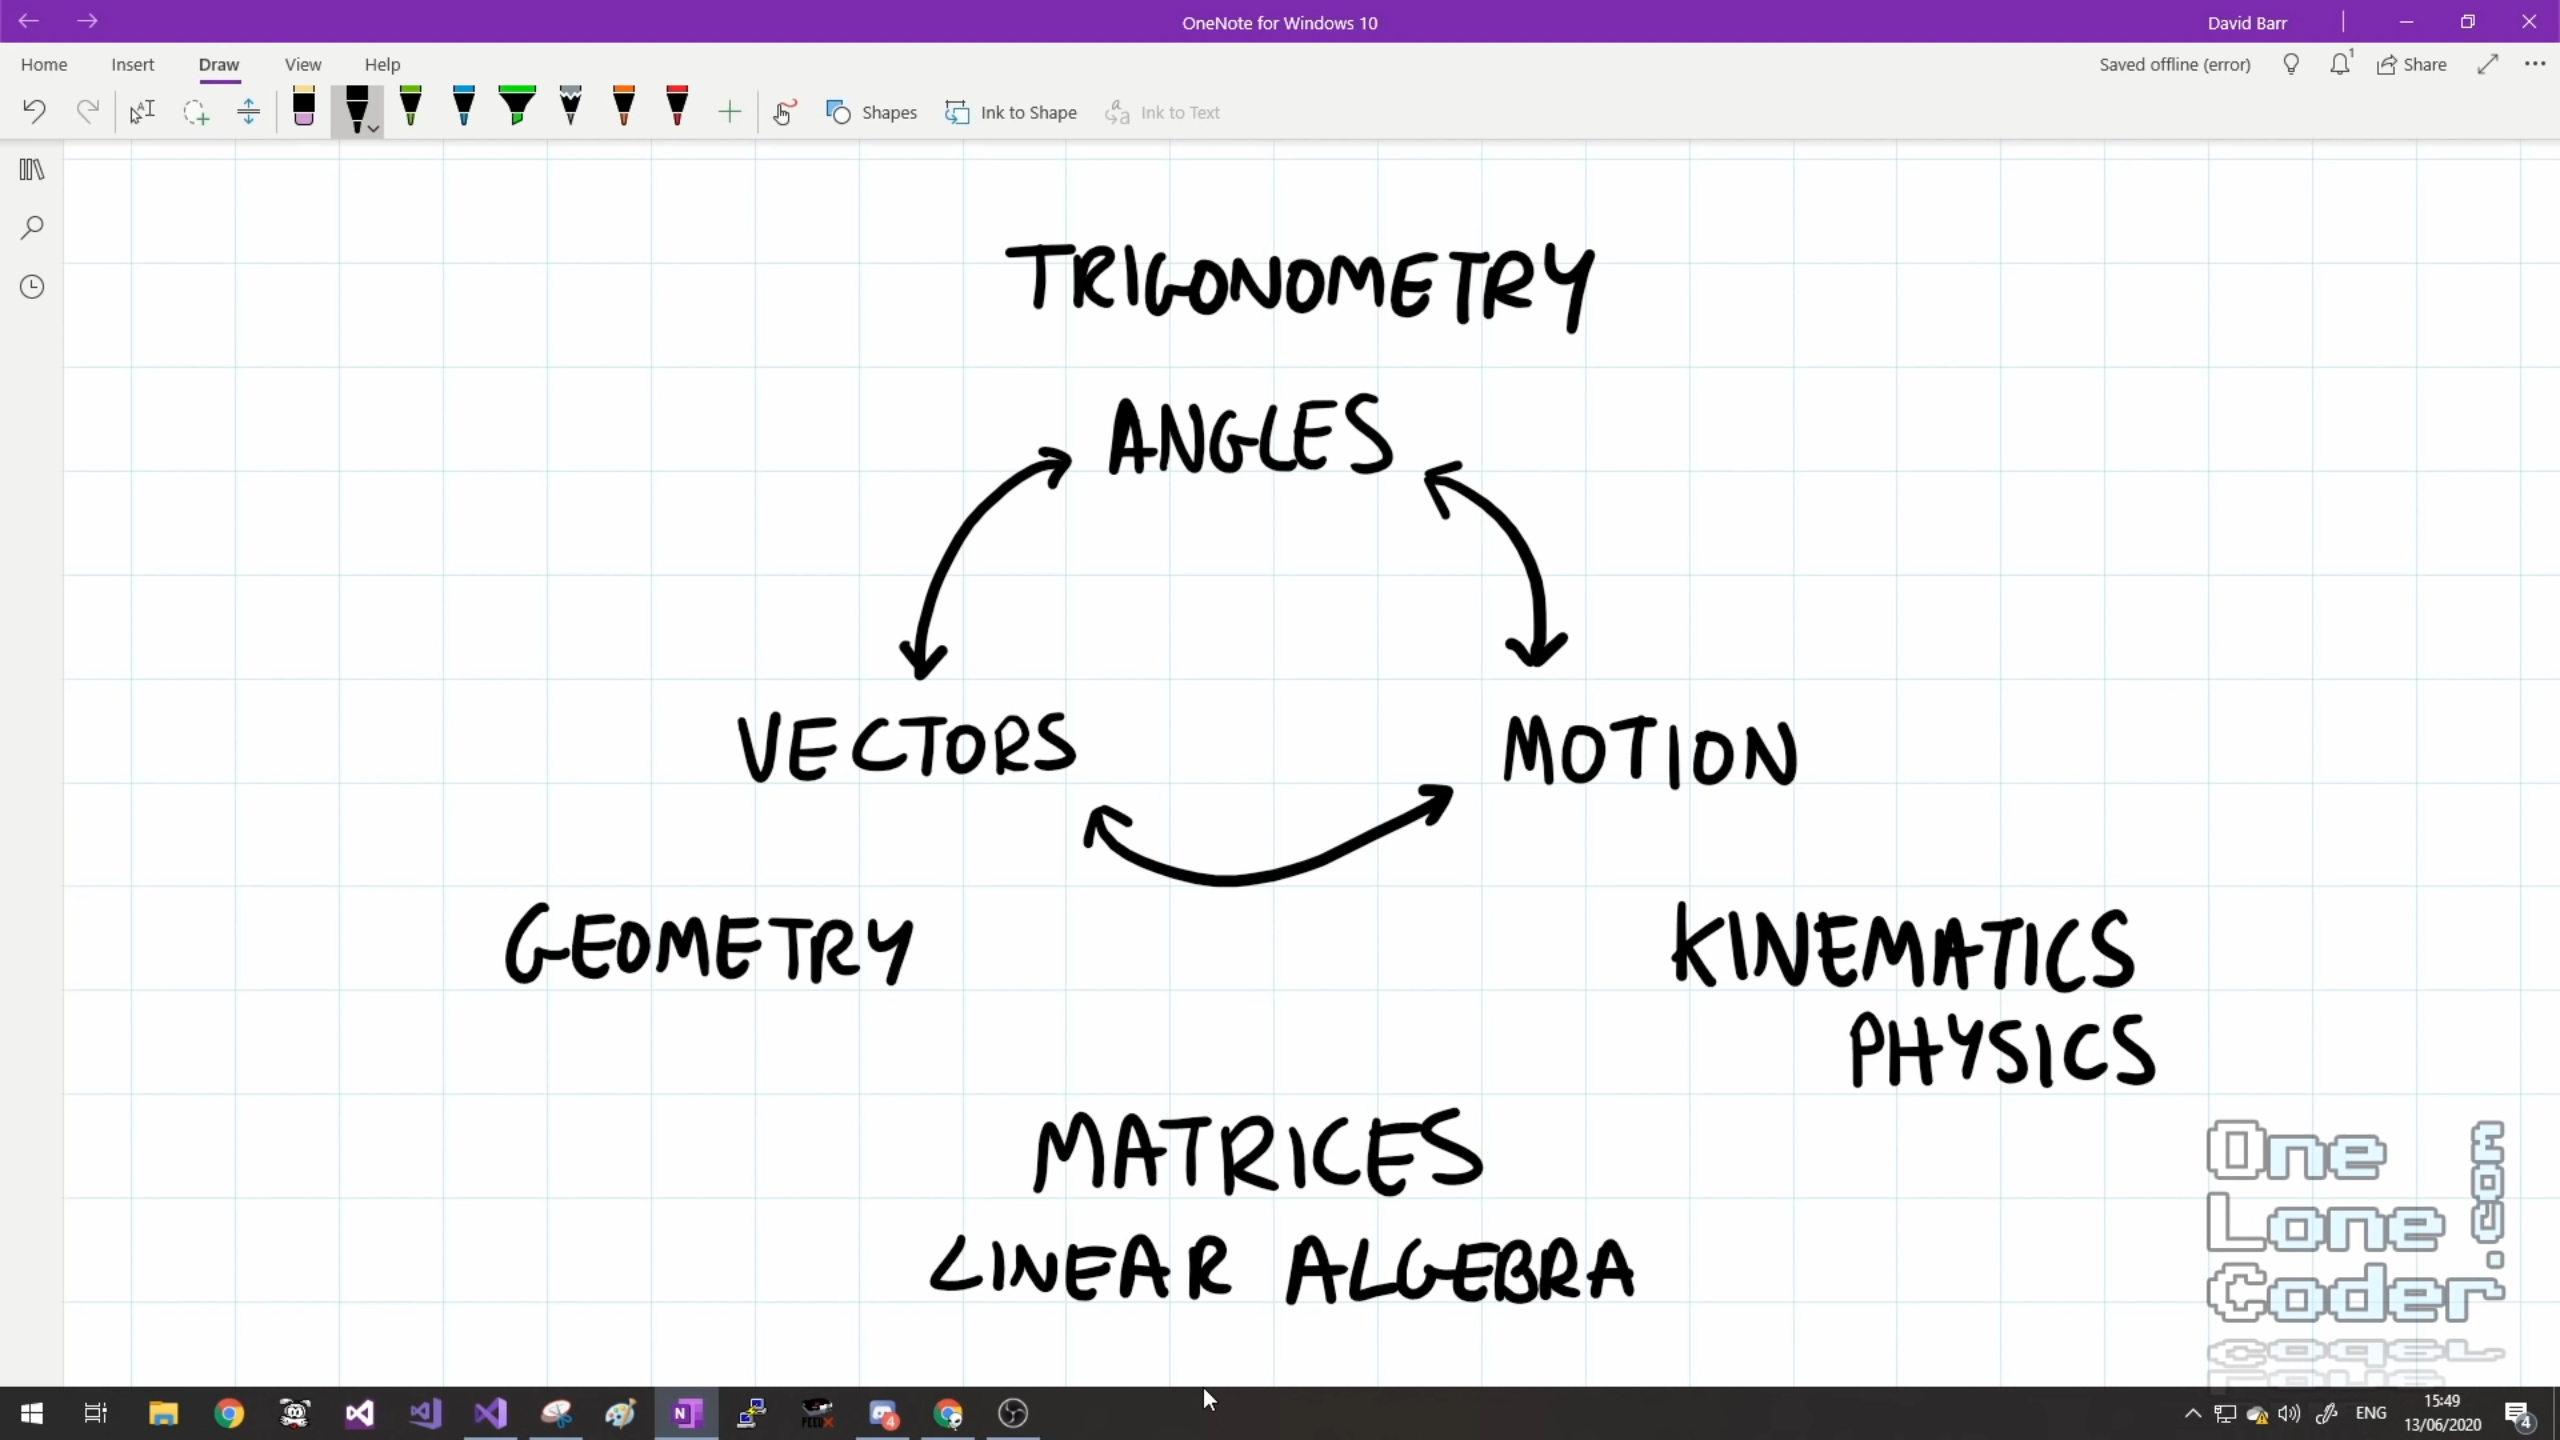 OneNote for Windows 10
David Barr
Home Insert Draw View Help
Saved offline (error)
1
Share
Shapes
Ink to Shape
Ink to Text
TRIGONOMETRY
ANGLES
VECTORS
MOTION
GEOMETRY
KINEMATICS
PHYSICS
MATRICES
LINEAR ALGEBRA
One
Lone
Coder
.com
4
ENG
15:49
13/06/2020
4